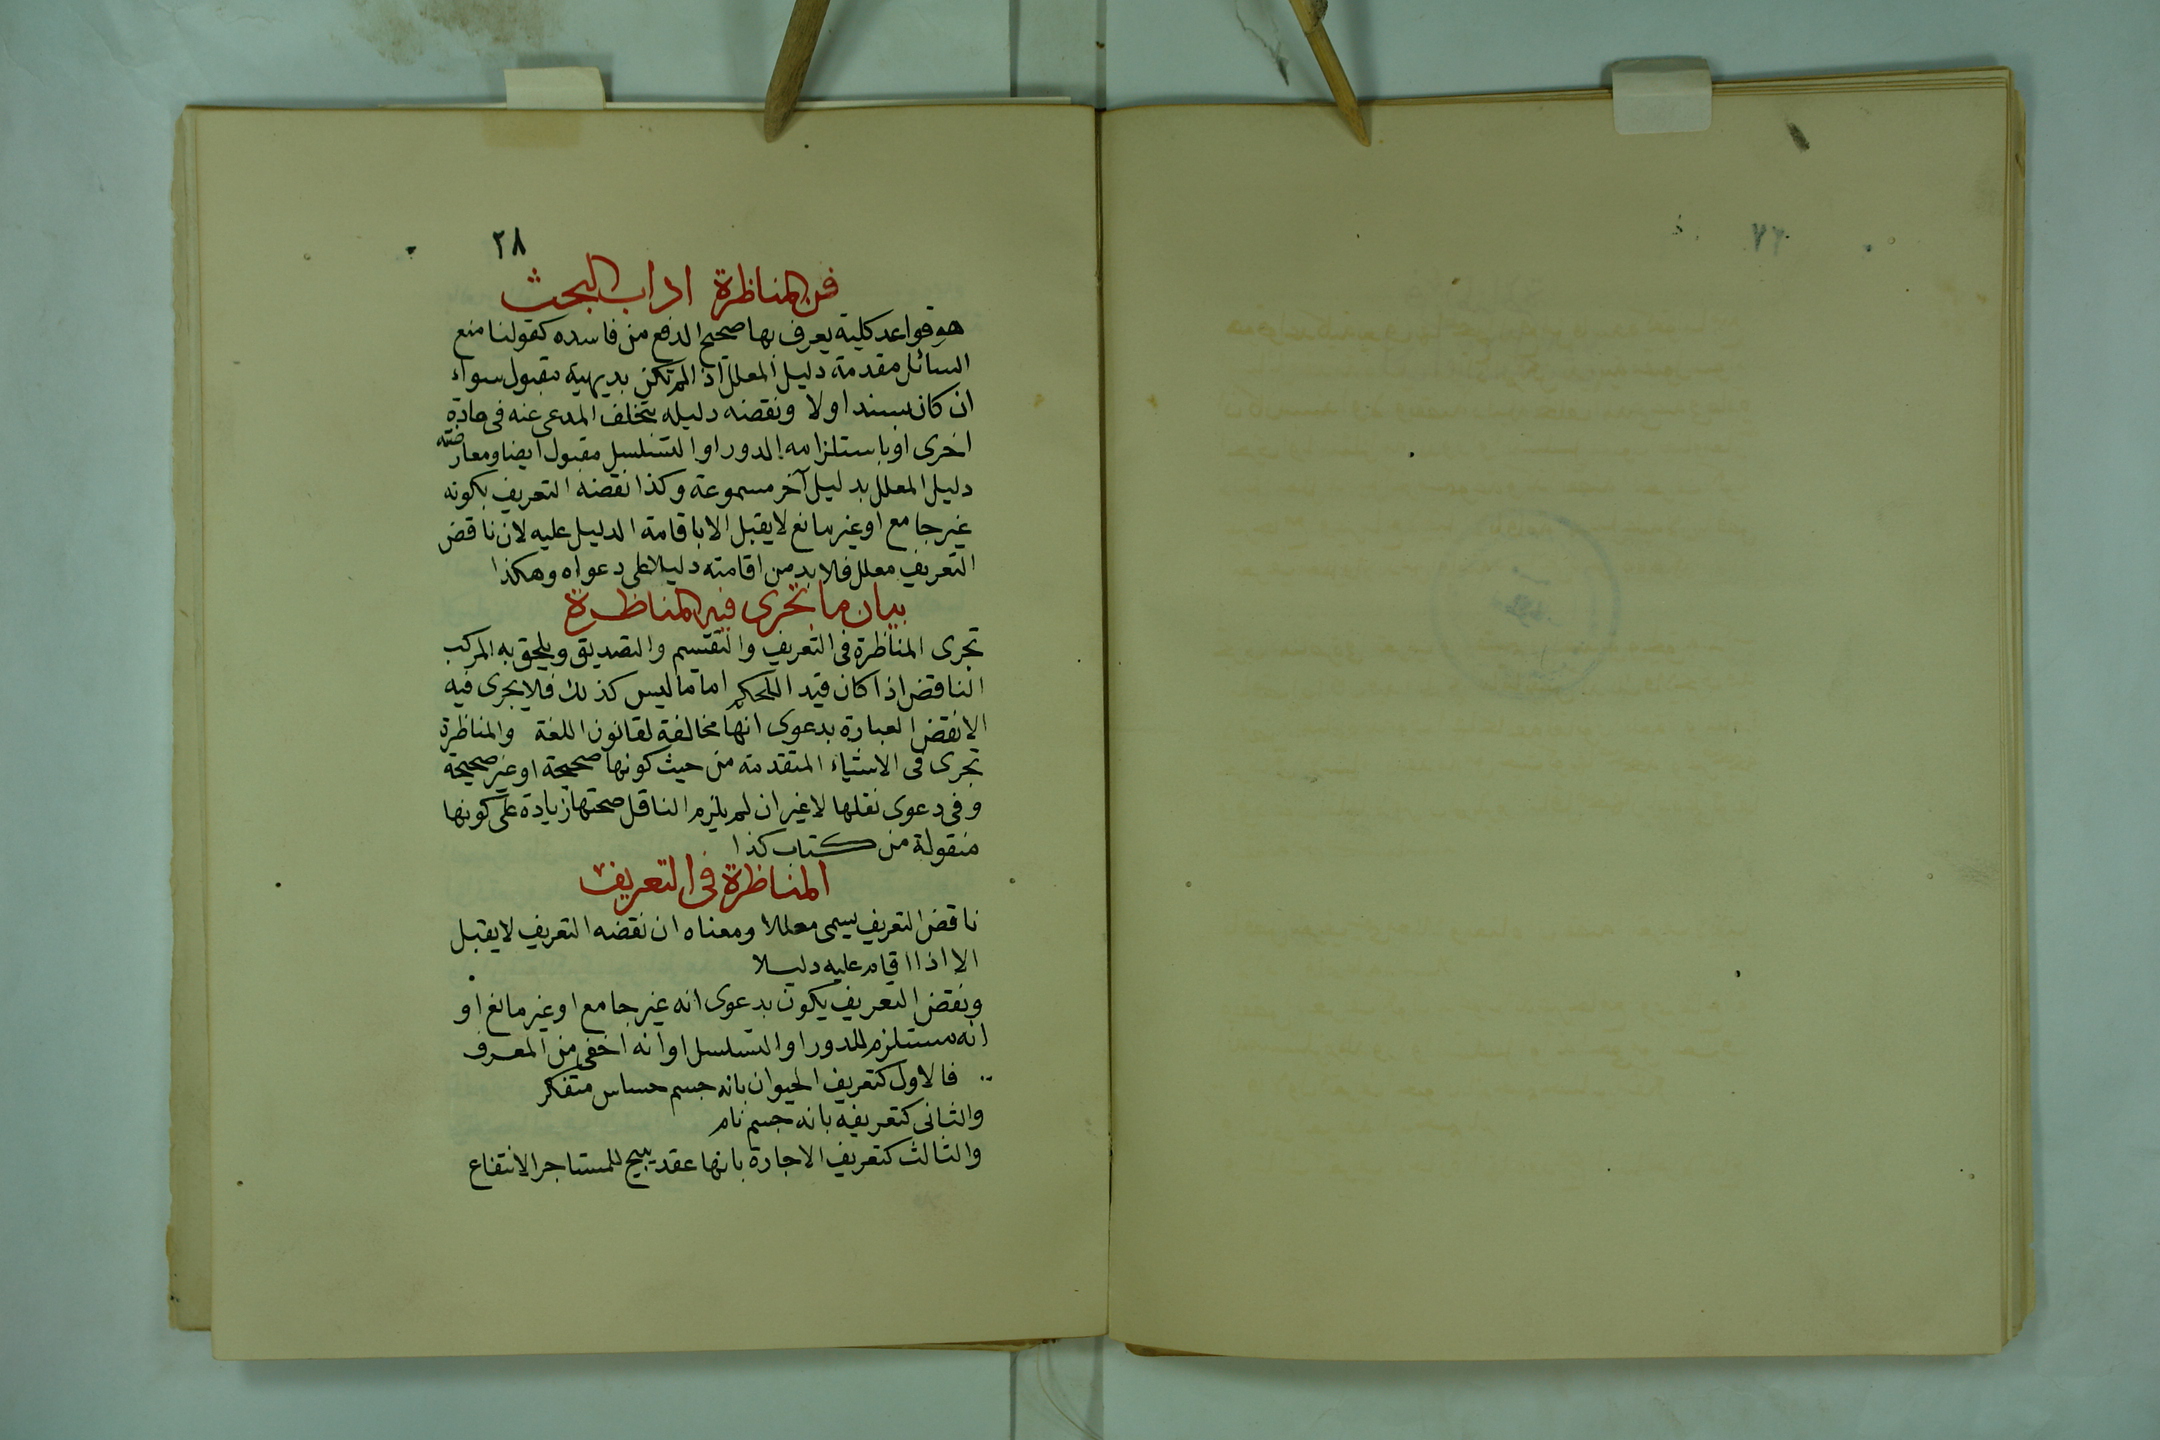 ٢٨
فن المناظرة اداب البحث
هو قواعد كلية يعرف بها صحيح الدفع من فاسده كقولنا منع
السائل مقدمة دليل المعلل اذا لم تكن بديهية مقبول سواء
ان كان بسند اولا ونقضه دليله بتخلف المدعى عنه فى مادة
اخرى او باستلزامه الدور او التسلسل مقبول ايضا ومعارضته
دليل المعلل بدليل آخر مسموعة وكذا نقضه التعريف بكونه
غير جامع او غير مانع لا يقبل الا باقامة الدليل عليه لان ناقض
التعريف معلل فلا بد من اقامته دليلا على دعواه وهكذا
بيان ما تجرى فيه المناظرة
تجرى المناظرة فى التعريف والتقسيم والتصديق ويلحق به المركب
الناقص اذا كان قيد اللحكم اما ما ليس كذلك فلا يجرى فيه
الا نقض العبارة بدعوى انها مخالفة لقانون اللغة والمناظرة
تجرى فى الاشياء المتقدمة من حيث كونها صحيحة او غير صحيحة
وفى دعوى نقلها لا غير ان لم يلتزم الناقل صحتها زيادة على كونها
منقولة من كتاب كذا
المناظرة فى التعريف
ناقض التعريف يسمى معللا ومعناه ان نقضه التعريف لا يقبل
الا اذا اقام عليه دليلا
ونقض التعريف يكون بدعوى انه غير جامع او غير مانع او
انه مستلزم للدور او التسلسل او انه اخفى من المعرف
فالاول كتعريف الحيوان بانه جسم حساس متفكر
والثانى كتعريفه بانه جسم نام
والثالث كتعريف الاجارة بانها عقد يبيح للمستاجر الانتفاع